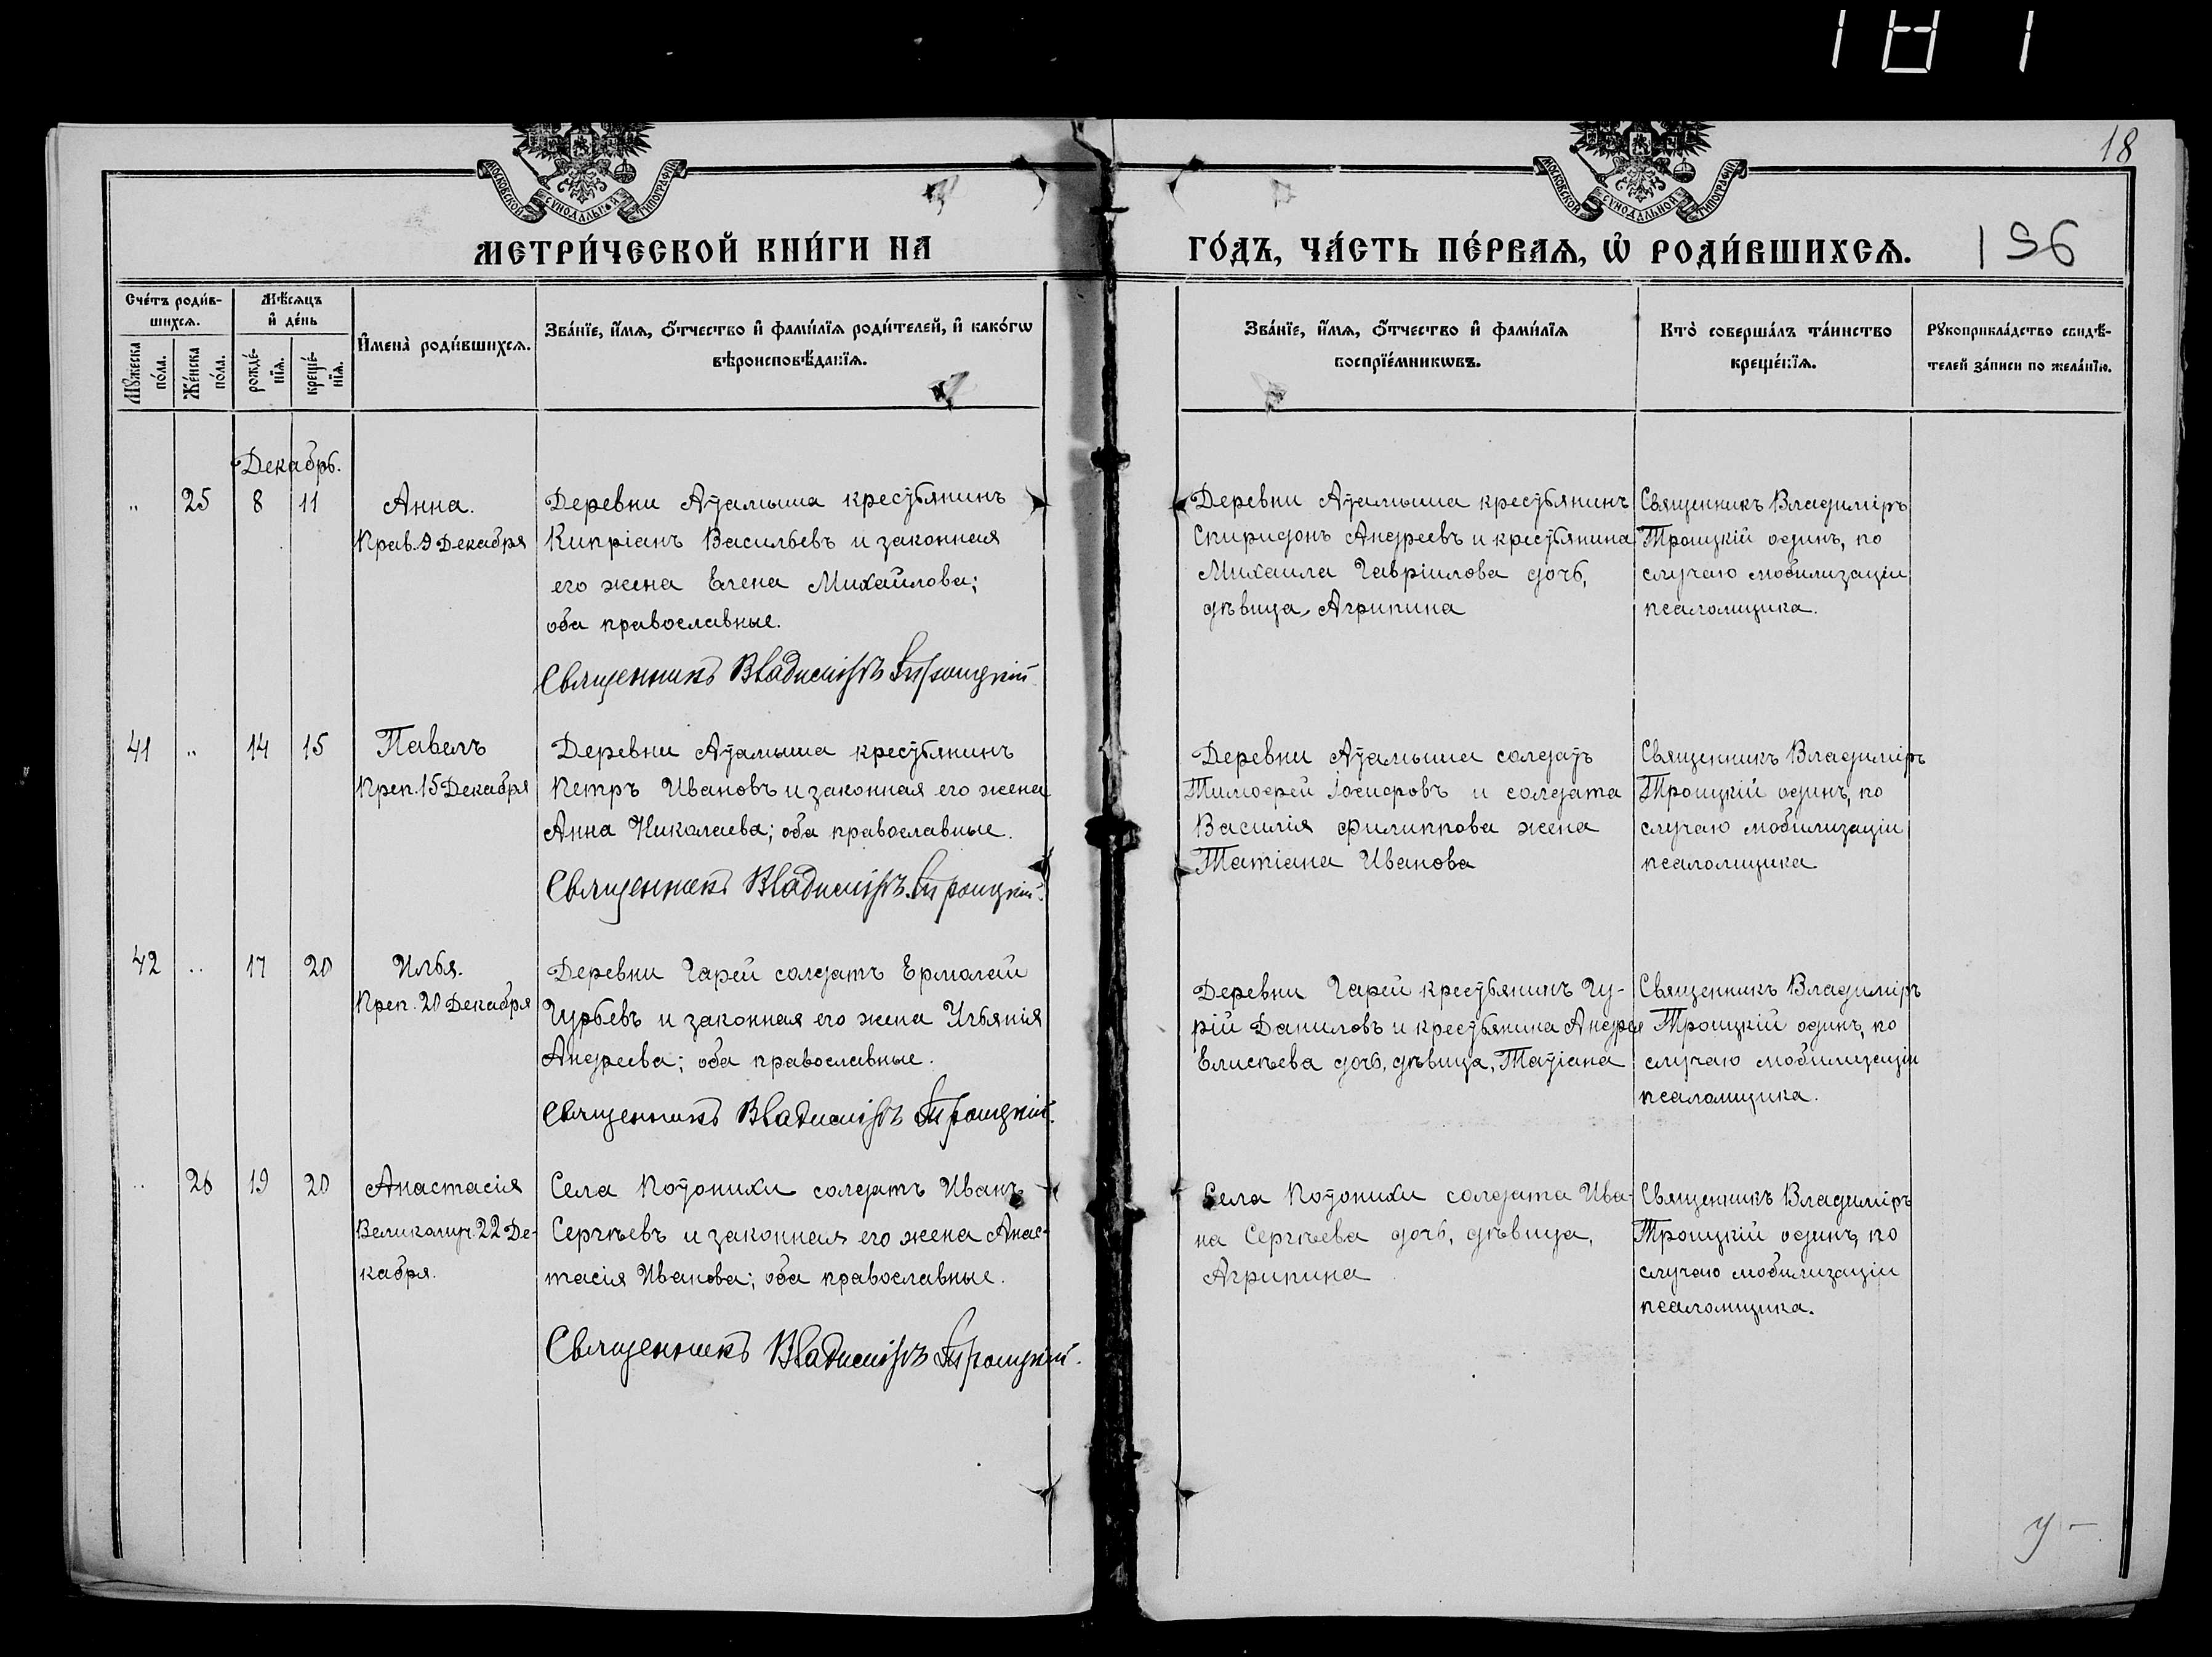 181
18
МОСКОВСКОЙ СѴНОДАЛЬНОЙ ТИПОГРАФІИ
МОСКОВСКОЙ СѴНОДАЛЬНОЙ ТИПОГРАФІИ
МЕТРИ́ЧЕСКОЙ КНИ́ГИ НА
ГО́ДЪ, ЧА́СТЬ ПЕ́РВАЯ, Ѡ РОДИ́ВШИХСЯ.
196
Сче́тъ роди́в-
шихся.
Мѣ́сяцъ
и҆ де́нь
Мꙋжеска
по́ла.
Же́нска
по́ла.
рожде́-
нїя.
креще́-
нїя.
И҆мена̀ роди́вшихся.
Зва́нїе, и҆́мя, ѻ҆́тчество и҆ фамѝлїя роди́телей, и҆ како́гѡ
вѣроисповѣ́данїя.
Зва́нїе, и҆́мя, ѻ҆́тчество и҆ фами́лїя
воспрїе́мникѡвъ.
Кто̀ соверша́лъ та́инство
креще́нїя.
Рꙋкоприкла́дство свидѣ́-
телей за́писи по жела́нїю.
Декабрь.
„ 25 8 11 Анна.
Прав. 9 Декабря
Деревни Атамыша крестьянинъ
Кипріанъ Васильевъ и законная
его жена Елена Михайлова;
оба православные.
Священникъ Владиміръ Троицкій
Деревни Атамыша крестьянинъ
Спиридонъ Андреевъ и крестьянина
Михаила Гавріилова дочь,
дѣвица, Агрипина
Священникъ Владиміръ
Троицкій одинъ, по
случаю мобилизаціи
псаломщика.
41 „ 14 15 Павелъ
Преп. 15 Декабря
Деревни Атамыша крестьянинъ
Петръ Ивановъ и законная его жена
Анна Николаева; оба православные.
Священникъ Владиміръ Троицкій.
Деревни Атамыша солдатъ
Тимоѳей Іосифовъ и солдата
Василія Филиппова жена
Татіана Иванова
Священникъ Владиміръ
Троицкій одинъ, по
случаю мобилизаціи
псаломщика
42 „ 17 20 Илья.
Преп. 20 Декабря
Деревни Гарей солдатъ Ермолай
Гурьевъ и законная его жена Ульянія
Андреева; оба православные.
Священникъ Владиміръ Троицкій.
Деревни Гарей крестьянинъ Гу-
рій Даниловъ и крестьянина Андрея
Елисѣева дочь, дѣвица, Татіана
Священникъ Владиміръ
Троицкій одинъ, по
случаю мобилизаціи
псаломщика.
„ 26 19 20 Анастасія
Великомуч. 22 Де-
кабря.
Села Потонихи солдатъ Иванъ
Сергѣевъ и законная его жена Анас-
тасія Иванова; оба православные.
Священникъ Владиміръ Троицкій.
Села Потонихи солдата Ива-
на Сергѣева дочь, дѣвица,
Агрипина
Священникъ Владиміръ
Троицкій одинъ, по
случаю мобилизаціи
псаломщика.